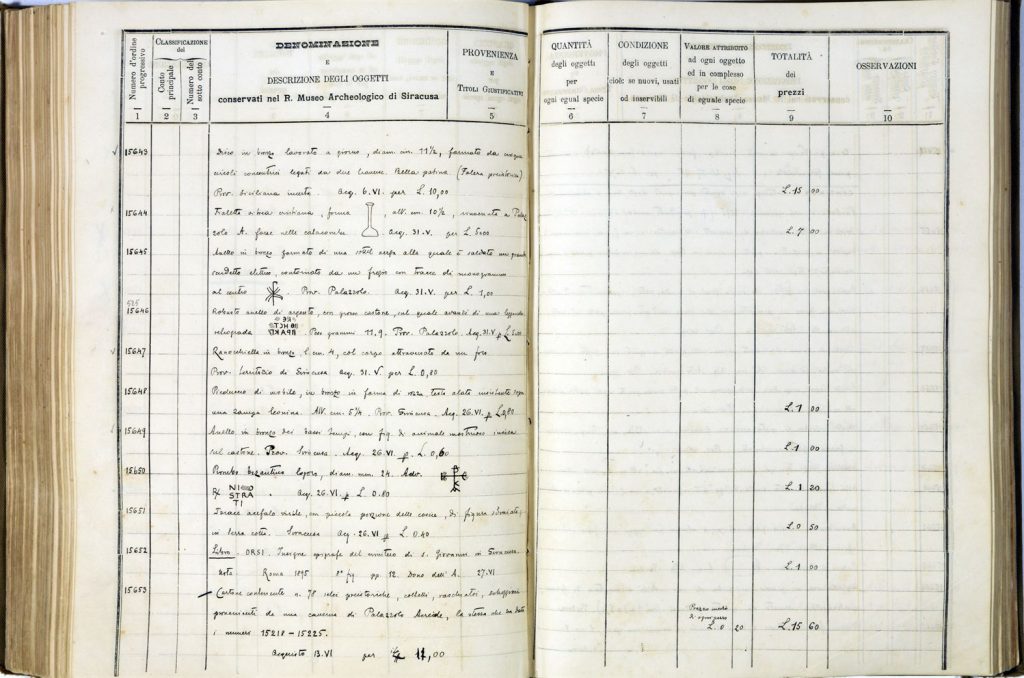 Numero d'ordine progressivo
CLASSIFICAZIONE
dei
Conto principale
Numero del sotto conto
DENOMINAZIONE
E
DESCRIZIONE DEGLI OGGETTI
conservati nel R. Museo Archeologico di Siracusa
PROVENIENZA
E
TITOLI GIUSTIFICATIVI
QUANTITÀ
degli oggetti
per
ogni egual specie
CONDIZIONE
degli oggetti
cioè: se nuovi, usati
od inservibili
VALORE ATTRIBUITO
ad ogni oggetto
ed in complesso
per le cose
di eguale specie
TOTALITÀ
dei
prezzi
OSSERVAZIONI
1 2 3 4 5 6 7 8 9 10
15643 Disco in bronzo lavorato a giorno, diam. cm. 11½, formato da cinque
circoli concentrici legati da due lamine. Bella patina. (Falera preistorica)
Prov. Siciliana incerta. Acq. 6. VI. per L. 10,00
L. 15 00
15644 Fialetta vitrea cristiana, forma , alt. cm. 10½, rinvenuta a Palaz
zolo A. forse nelle catacombe. Acq. 31. V. per L. 5,00
L. 7 00
15645 Anello in bronzo formato di una verga alla quale è saldato un grande
scudetto elittico, contornato da un fregio con tracce di monogramma
al centro . Prov. Palazzolo. Acq. 31. V. per L. 1,00
525
15646 Robusto anello di argento, con grosso castone, sul quale avanzi di una leggenda
retrograda . Peso grammi 11.9. Prov. Palazzolo. Acq. 31. V p. L. 5,00
15647 Ranocchiella in bronzo, l. cm. 4, col corpo attraversato da un foro
Prov. territorio di Siracusa Acq. 31. V. per L. 0,80
15648 Peduccio di mobile, in bronzo in forma di testa alata
una zampa leonina. Alt. cm. 5¼. Prov. Siracusa. Acq. 26. VI. p. L. 0,80
L. 1 00
15649 Anello in bronzo dei bassi tempi, con fig. di animale mostruoso incisa
sul castone. Prov. Siracusa. Acq. 26. VI. p. L. 0,60
L. 1 00
15650 Piombo bizantino logoro, diam. mm. 24. Adv.
R/ NI
STRA
TI . Acq. 26. VI p L. 0.80
L. 1 20
15651 Torace acefalo virile, con piccola porzione delle coscie, di figura sdraiata,
in terra cotta. Siracusa Acq. 26. VI p L. 0.40
L. 0 50
15652 Libro. ORSI. Insigne epigrafe del cimitero di S. Giovanni in Siracusa
Nota Roma 1895 8° fig. pp. 12. Dono dell'A. 27. VI
L. 1 00
15653 Cartone contenente n. 78 selci preistoriche, coltelli, raschiatoi, scheggioni
provenienti da una caverna di Palazzolo Acreide, la stessa che ha dato
i numeri 15218 – 15225.
Prezzo medio
d'ogni pezzo
L. 0 20
L. 15 60
Acquisto 13. VI per L. 11,00